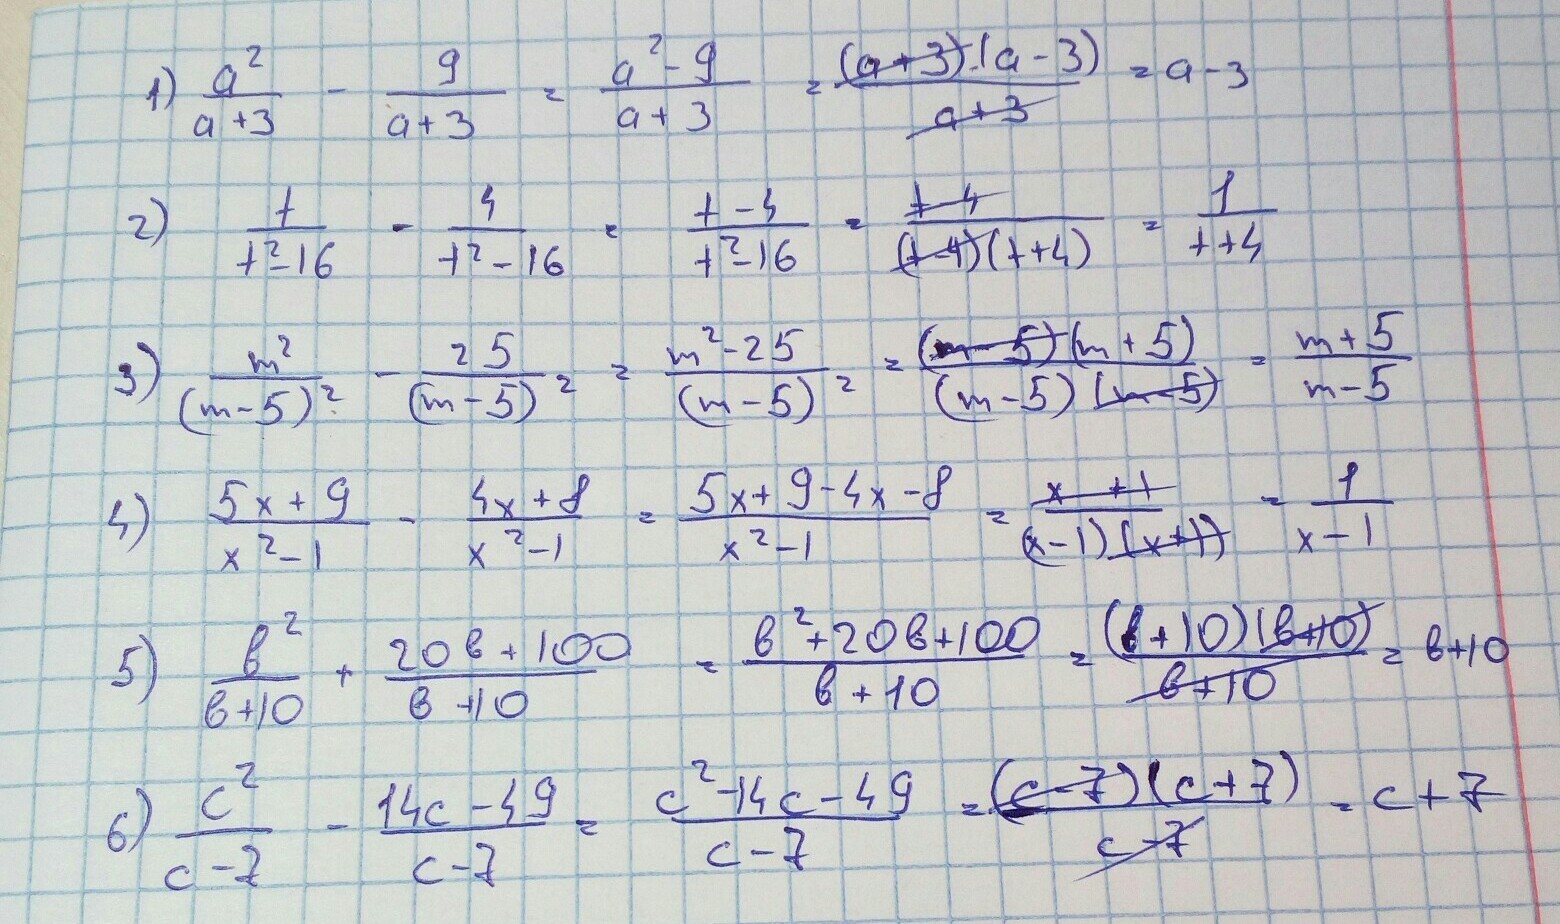 1) a²/(a+3) - 9/(a+3) = (a²-9)/(a+3) = (a+3)·(a-3)/(a+3) = a-3
2) t/(t²-16) - 4/(t²-16) = (t-4)/(t²-16) = (t-4)/((t-4)(t+4)) = 1/(t+4)
3) m²/(m-5)² - 25/(m-5)² = (m²-25)/(m-5)² = (m-5)(m+5)/((m-5)(m-5)) = (m+5)/(m-5)
4) (5x+9)/(x²-1) - (4x+8)/(x²-1) = (5x+9-4x-8)/(x²-1) = (x+1)/((x-1)(x+1)) = 1/(x-1)
5) в²/(в+10) + (20в+100)/(в+10) = (в²+20в+100)/(в+10) = (в+10)(в+10)/(в+10) = в+10
6) c²/(c-7) - (14c-49)/(c-7) = (c²-14c-49)/(c-7) = (c-7)(c+7)/(c-7) = c+7